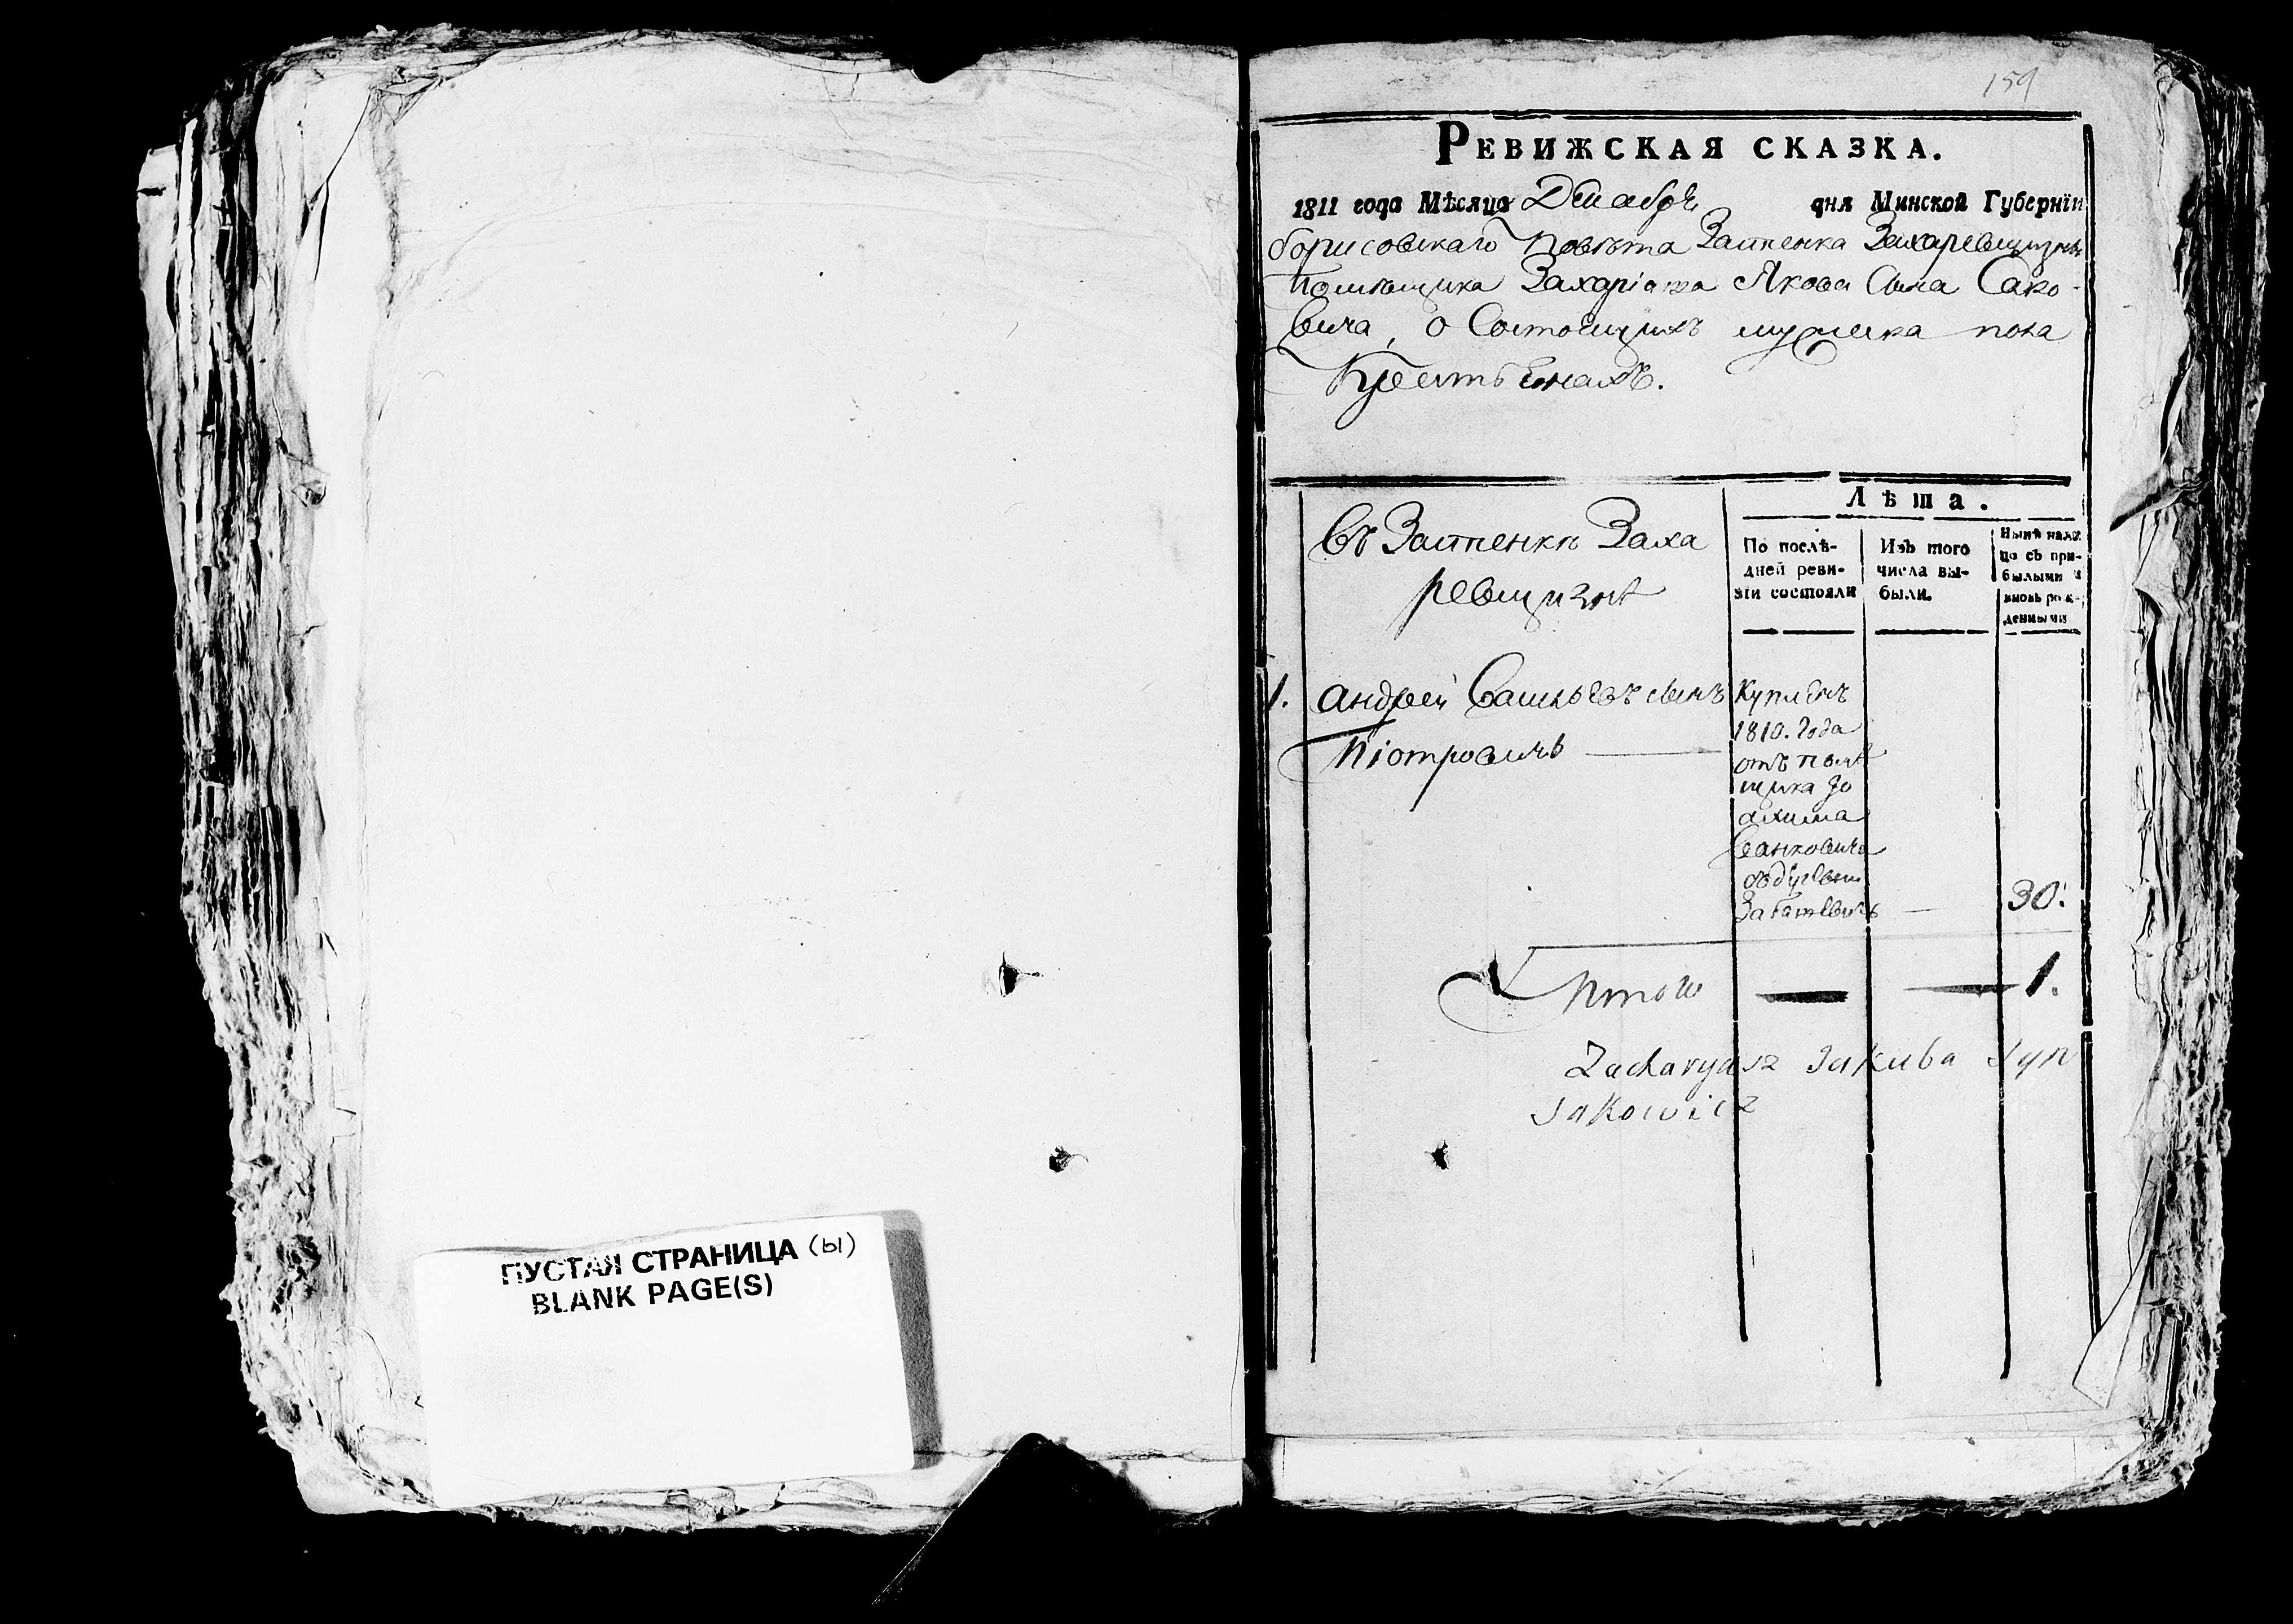 ПУСТАЯ СТРАНИЦА (ы)
BLANK PAGE(S)
159
РЕВИЖСКАЯ СКАЗКА.
1811 года Мѣсяца Декабрь дня Минской Губернїи
борисовскаго Повѣта Застенка Захаревщизнѣ
Помѣщика Захаріаша Якова Сына Сако-
вича, о Состоящихъ мужеска пола
Крестьенахъ.
Лѣта.
Въ Застенкѣ Заха
ревщизнѣ
По послѣ-
дней реви-
зїи состояли
Изъ того
числа вы-
были.
Нынѣ нали
цо съ при-
былыми и
вновь рож-
денными
1. андрей Васильевъ сынъ
Піотровичъ
Купленъ
1810. Года
отъ помѣ
щика Іо
ахима
Ванковича
30.
Итого 1.
Zacharyasz Jakuba Syn
Sakowicz